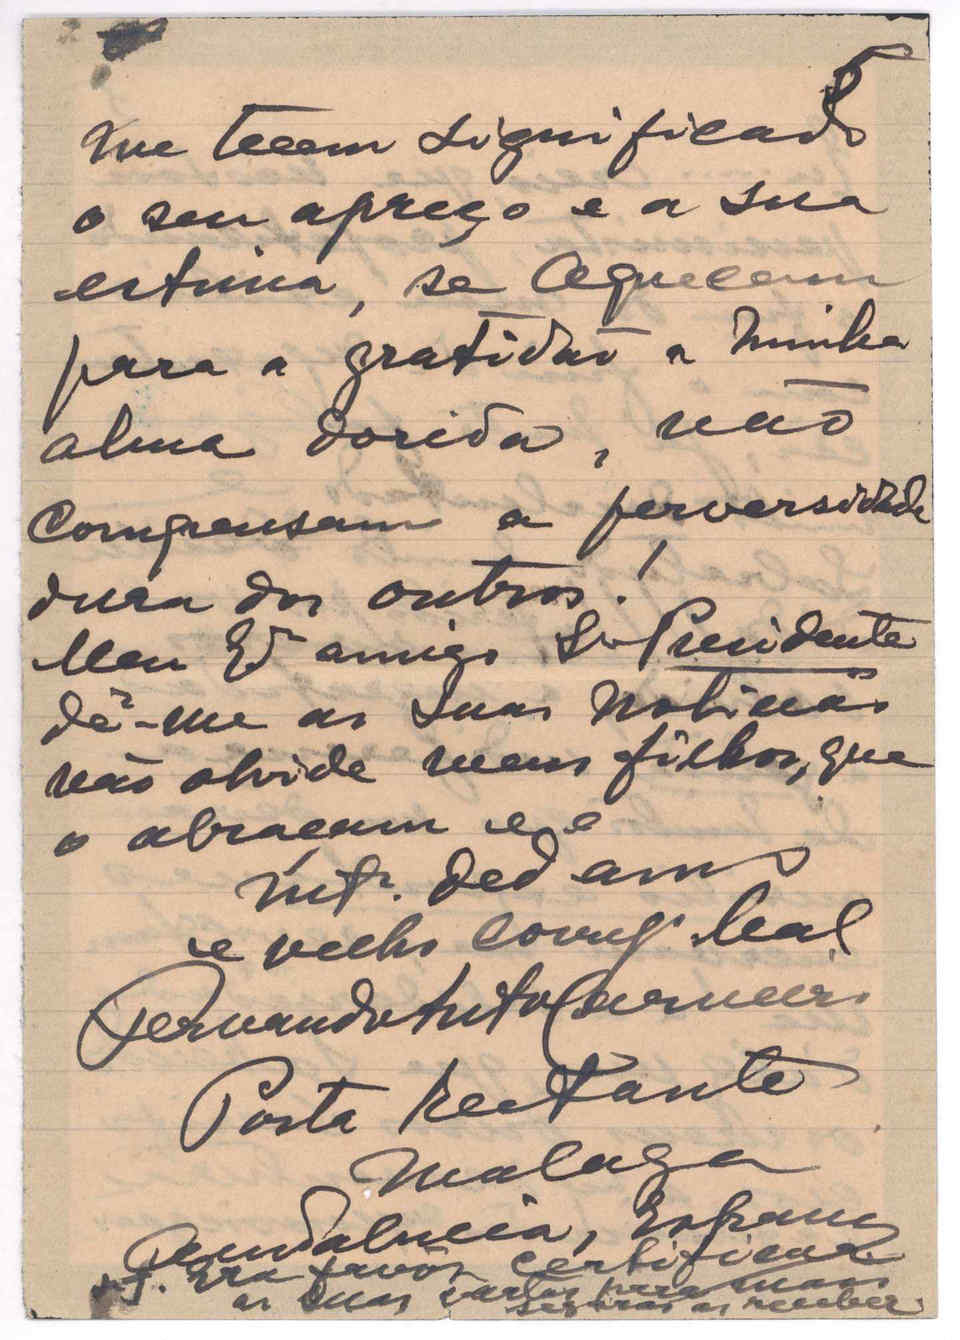 5
me teem significado
o seu apreço e a sua
estima, se aquecem
para a gratidão a minha
alma dorida, não
compensam a perversidade
dura dos outros!
Meu Exº amigo Sr Presidente
dê-me as suas noticias
não olvide meus filhos, que
o abraçam e e
mtº. ded amº
e velho correlº leal
Fernando Auto Carneiro
Posta Restante
Malaga
Andalucia, Espana
P.S. Era favor certificar
as suas cartas para mais
seguras as receber